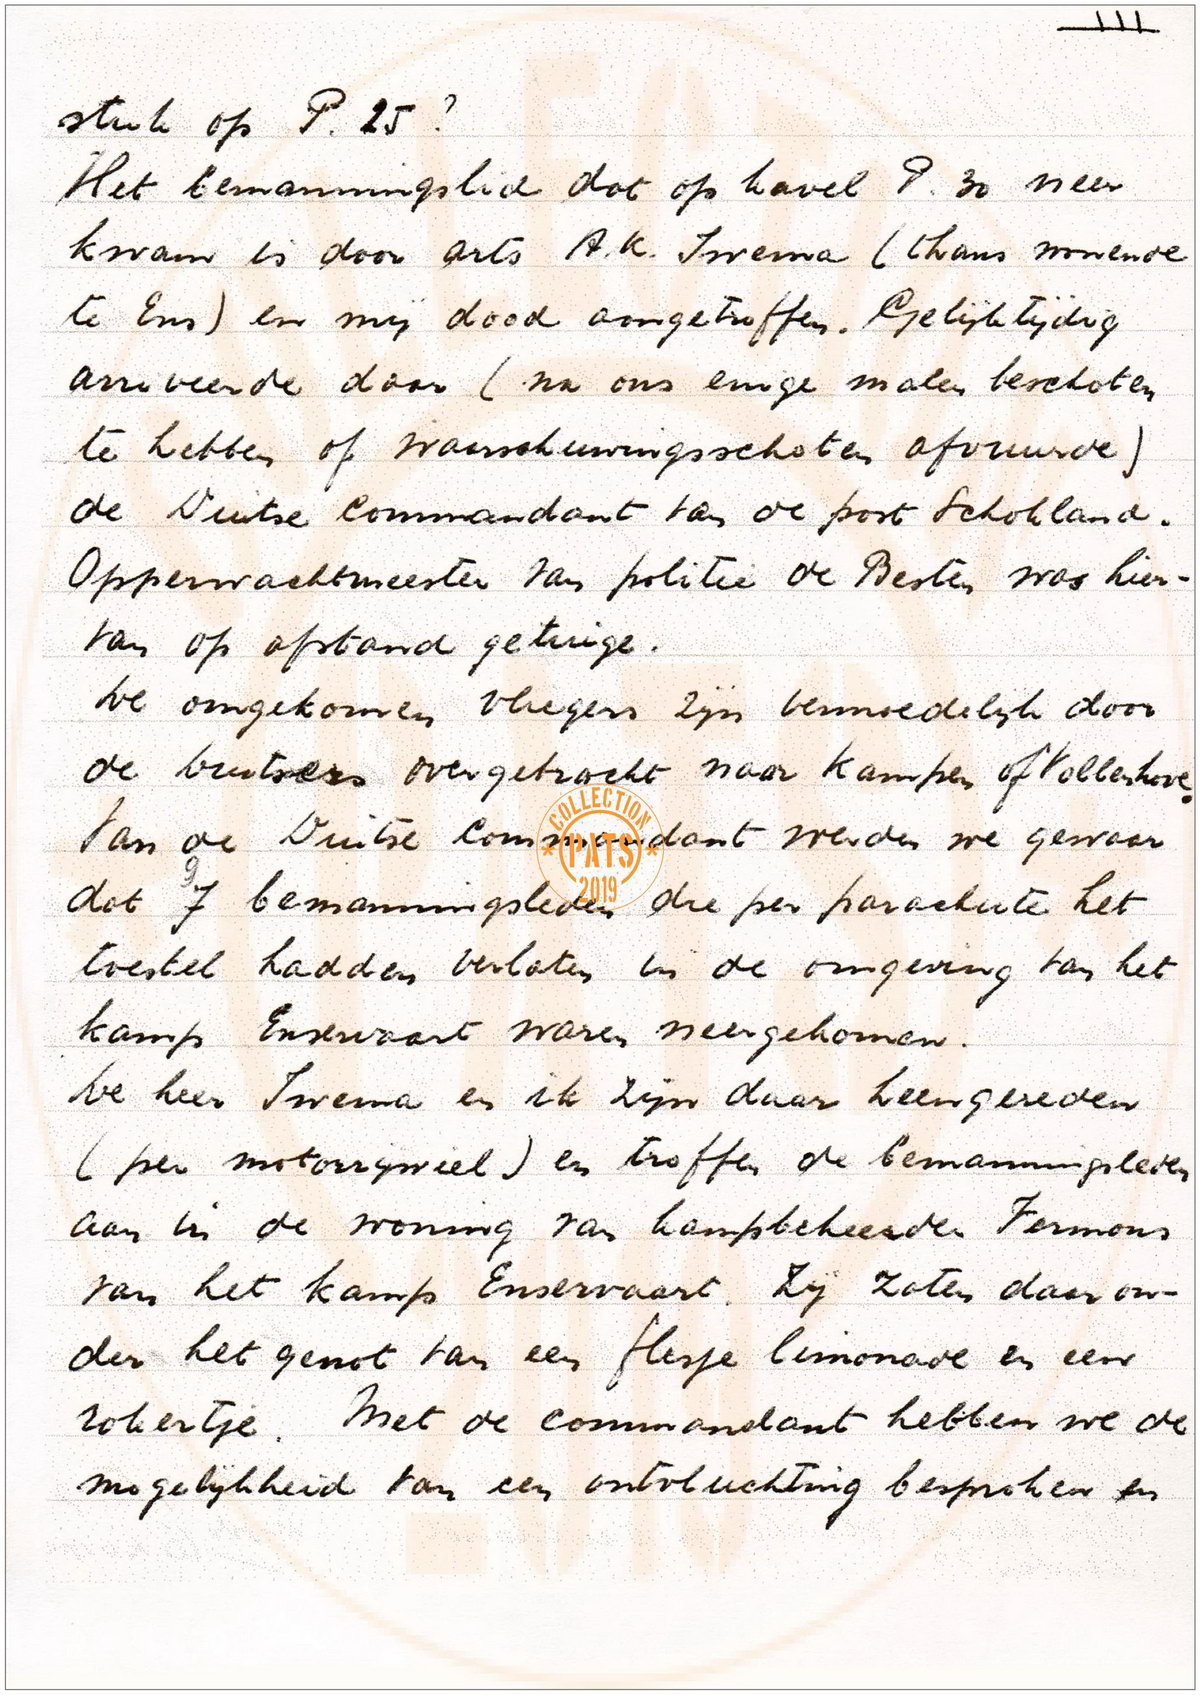 III
stuk op P. 25?
Het bemanningslid dat op kavel P. 30 neer
kwam is door arts A.K. Iwema (thans wonende
te Ens) en mij dood aangetroffen. Gelijktijdig
arriveerde daar (na ons enige malen beschoten
te hebben of waarschuwingsschoten afvuurde)
de Duitse Commandant van de post Schokland.
Opperwachtmeester van politie de Besten was hier-
van op afstand getuige.
De omgekomen vliegers zijn vermoedelijk door
de Duitsers overgebracht naar Kampen of Vollenhove.
Van de Duitse Commandant werden we gewaar
9
dat 7 bemanningsleden die per parachute het
toestel hadden verlaten in de omgeving van het
kamp Enservaart waren neergekomen.
De heer Iwema en ik zijn daar heengereden
(per motorrijwiel) en troffen de bemanningsleden
aan in de woning van kampbeheerder Fermons
van het kamp Enservaart. Zij zaten daar on-
der het genot van een flesje limonade en een
rokertje. Met de commandant hebben we de
mogelijkheid van een ontvluchting besproken en
COLLECTION
PATS
2019